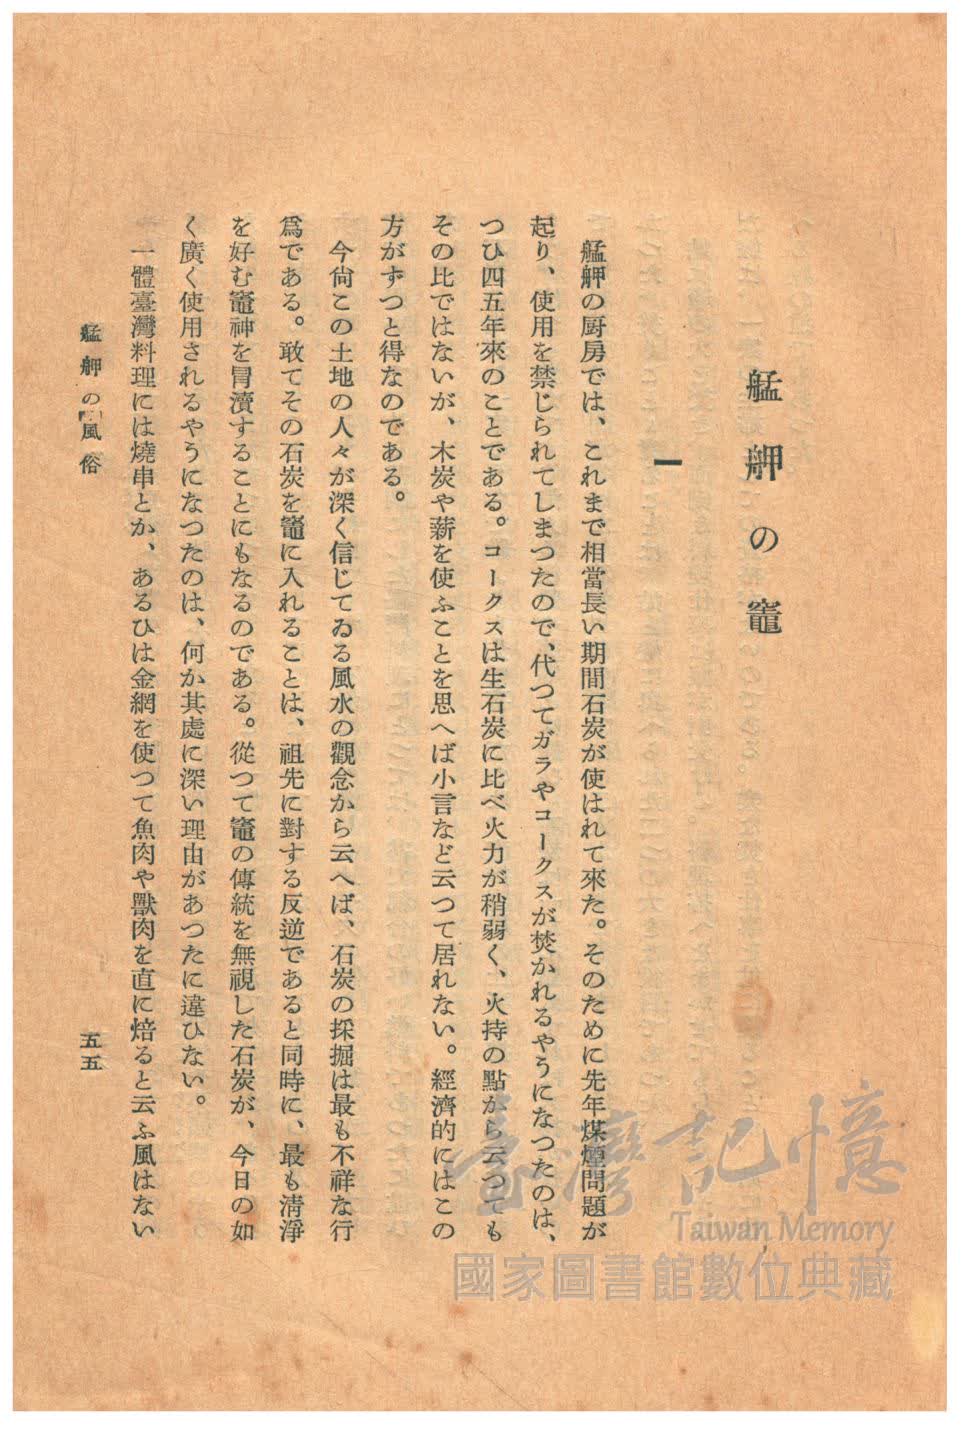 艋舺の竈
一
艋舺の厨房では、これまで相當長い期間石炭が使はれて來た。そのために先年煤煙問題が
起り、使用を禁じられてしまつたので、代つてガラやコークスが焚かれるやうになつたのは、
つひ四五年來のことである。コークスは生石炭に比べ火力が稍弱く、火持の點から云つても
その比ではないが、木炭や薪を使ふことを思へば小言など云つて居れない。經濟的にはこの
方がずつと得なのである。
今尙この土地の人々が深く信じてゐる風水の觀念から云へば、石炭の採掘は最も不祥な行
爲である。敢てその石炭を竈に入れることは、祖先に對する反逆であると同時に、最も淸淨
を好む竈神を冒瀆することにもなるのである。從つて竈の傳統を無視した石炭が、今日の如
く廣く使用されるやうになつたのは、何か其處に深い理由があつたに違ひない。
一體臺灣料理には燒串とか、あるひは金網を使つて魚肉や獸肉を直に焙ると云ふ風はない
艋舺の風俗
五五
臺灣記憶
Taiwan Memory
國家圖書館數位典藏